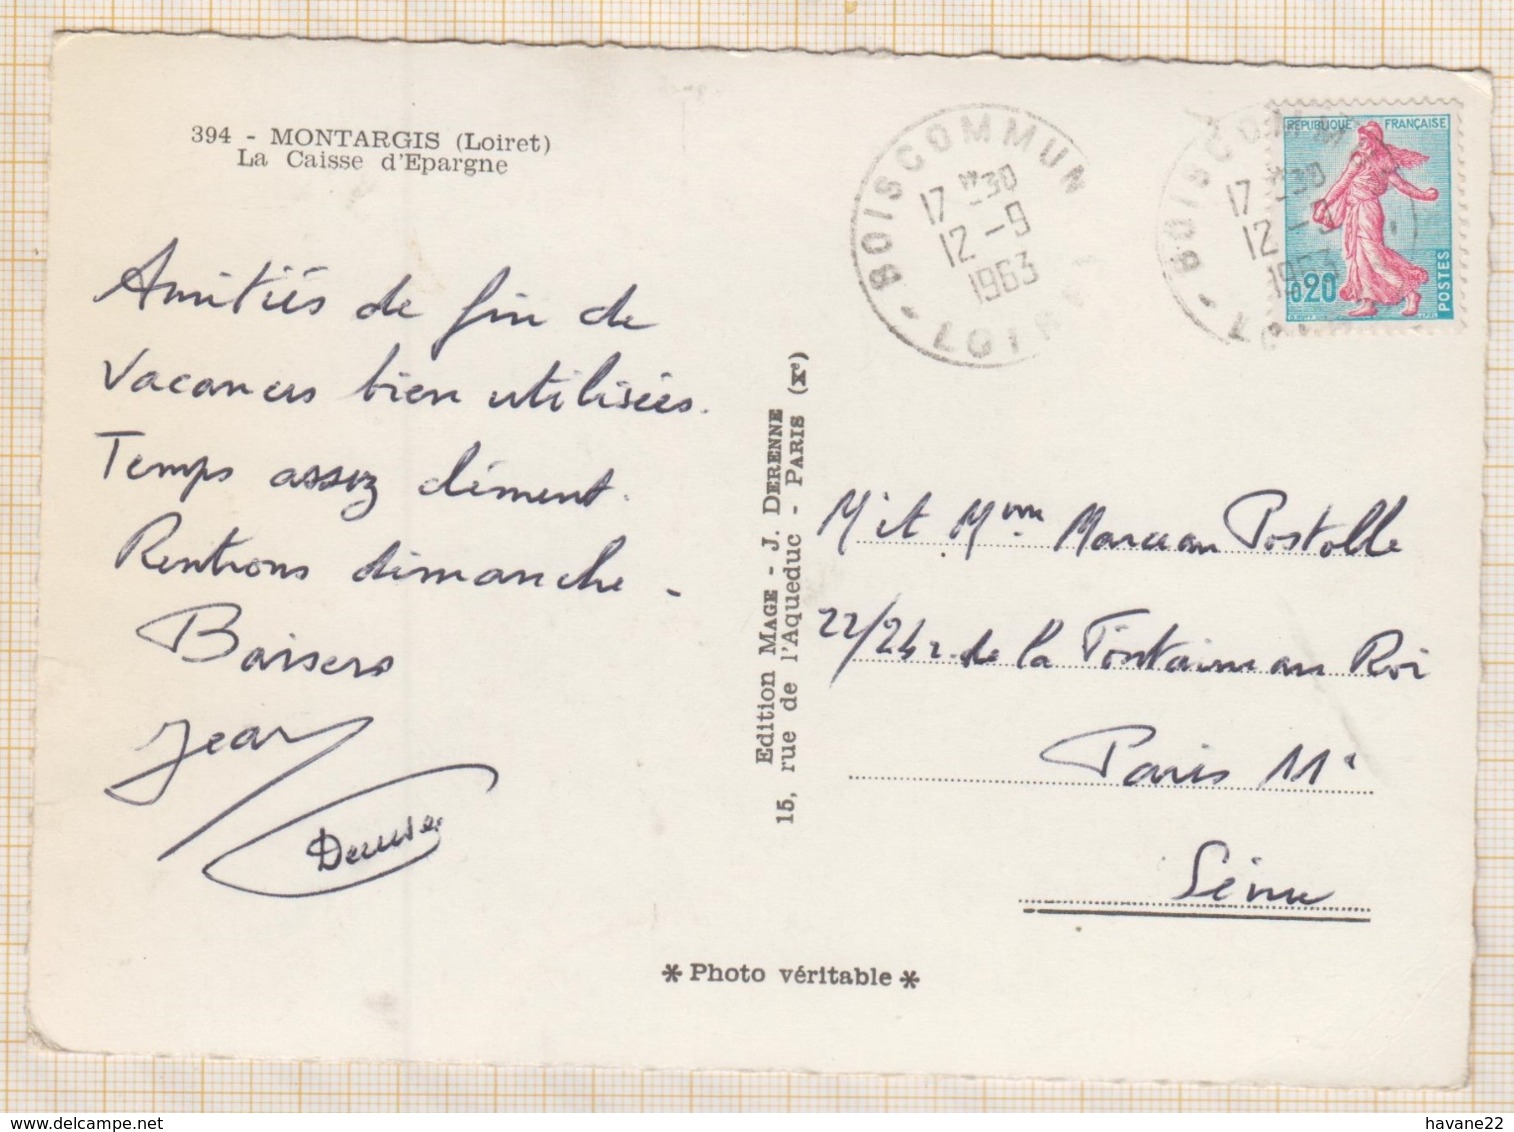 394 - MONTARGIS (Loiret)
La Caisse d'Epargne
Amitiés de fin de
Vacances bien utilisées.
Temps assez clément.
Rentrons dimanche -
Baisers
Jean
Denise
Edition MAGE - J. DERENNE
15, rue de l'Aqueduc - PARIS (Xe)
BOISCOMMUN
17 H30
12 -9
1963
LOIRET
BOISCOMM
17 H30
12 -9
1963
REPUBLIQUE FRANÇAISE
0,20
POSTES
M et Mme Marceau Postolle
22/24 r. de la Fontaine au Roi
Paris 11e
Seine
* Photo véritable *
havane22